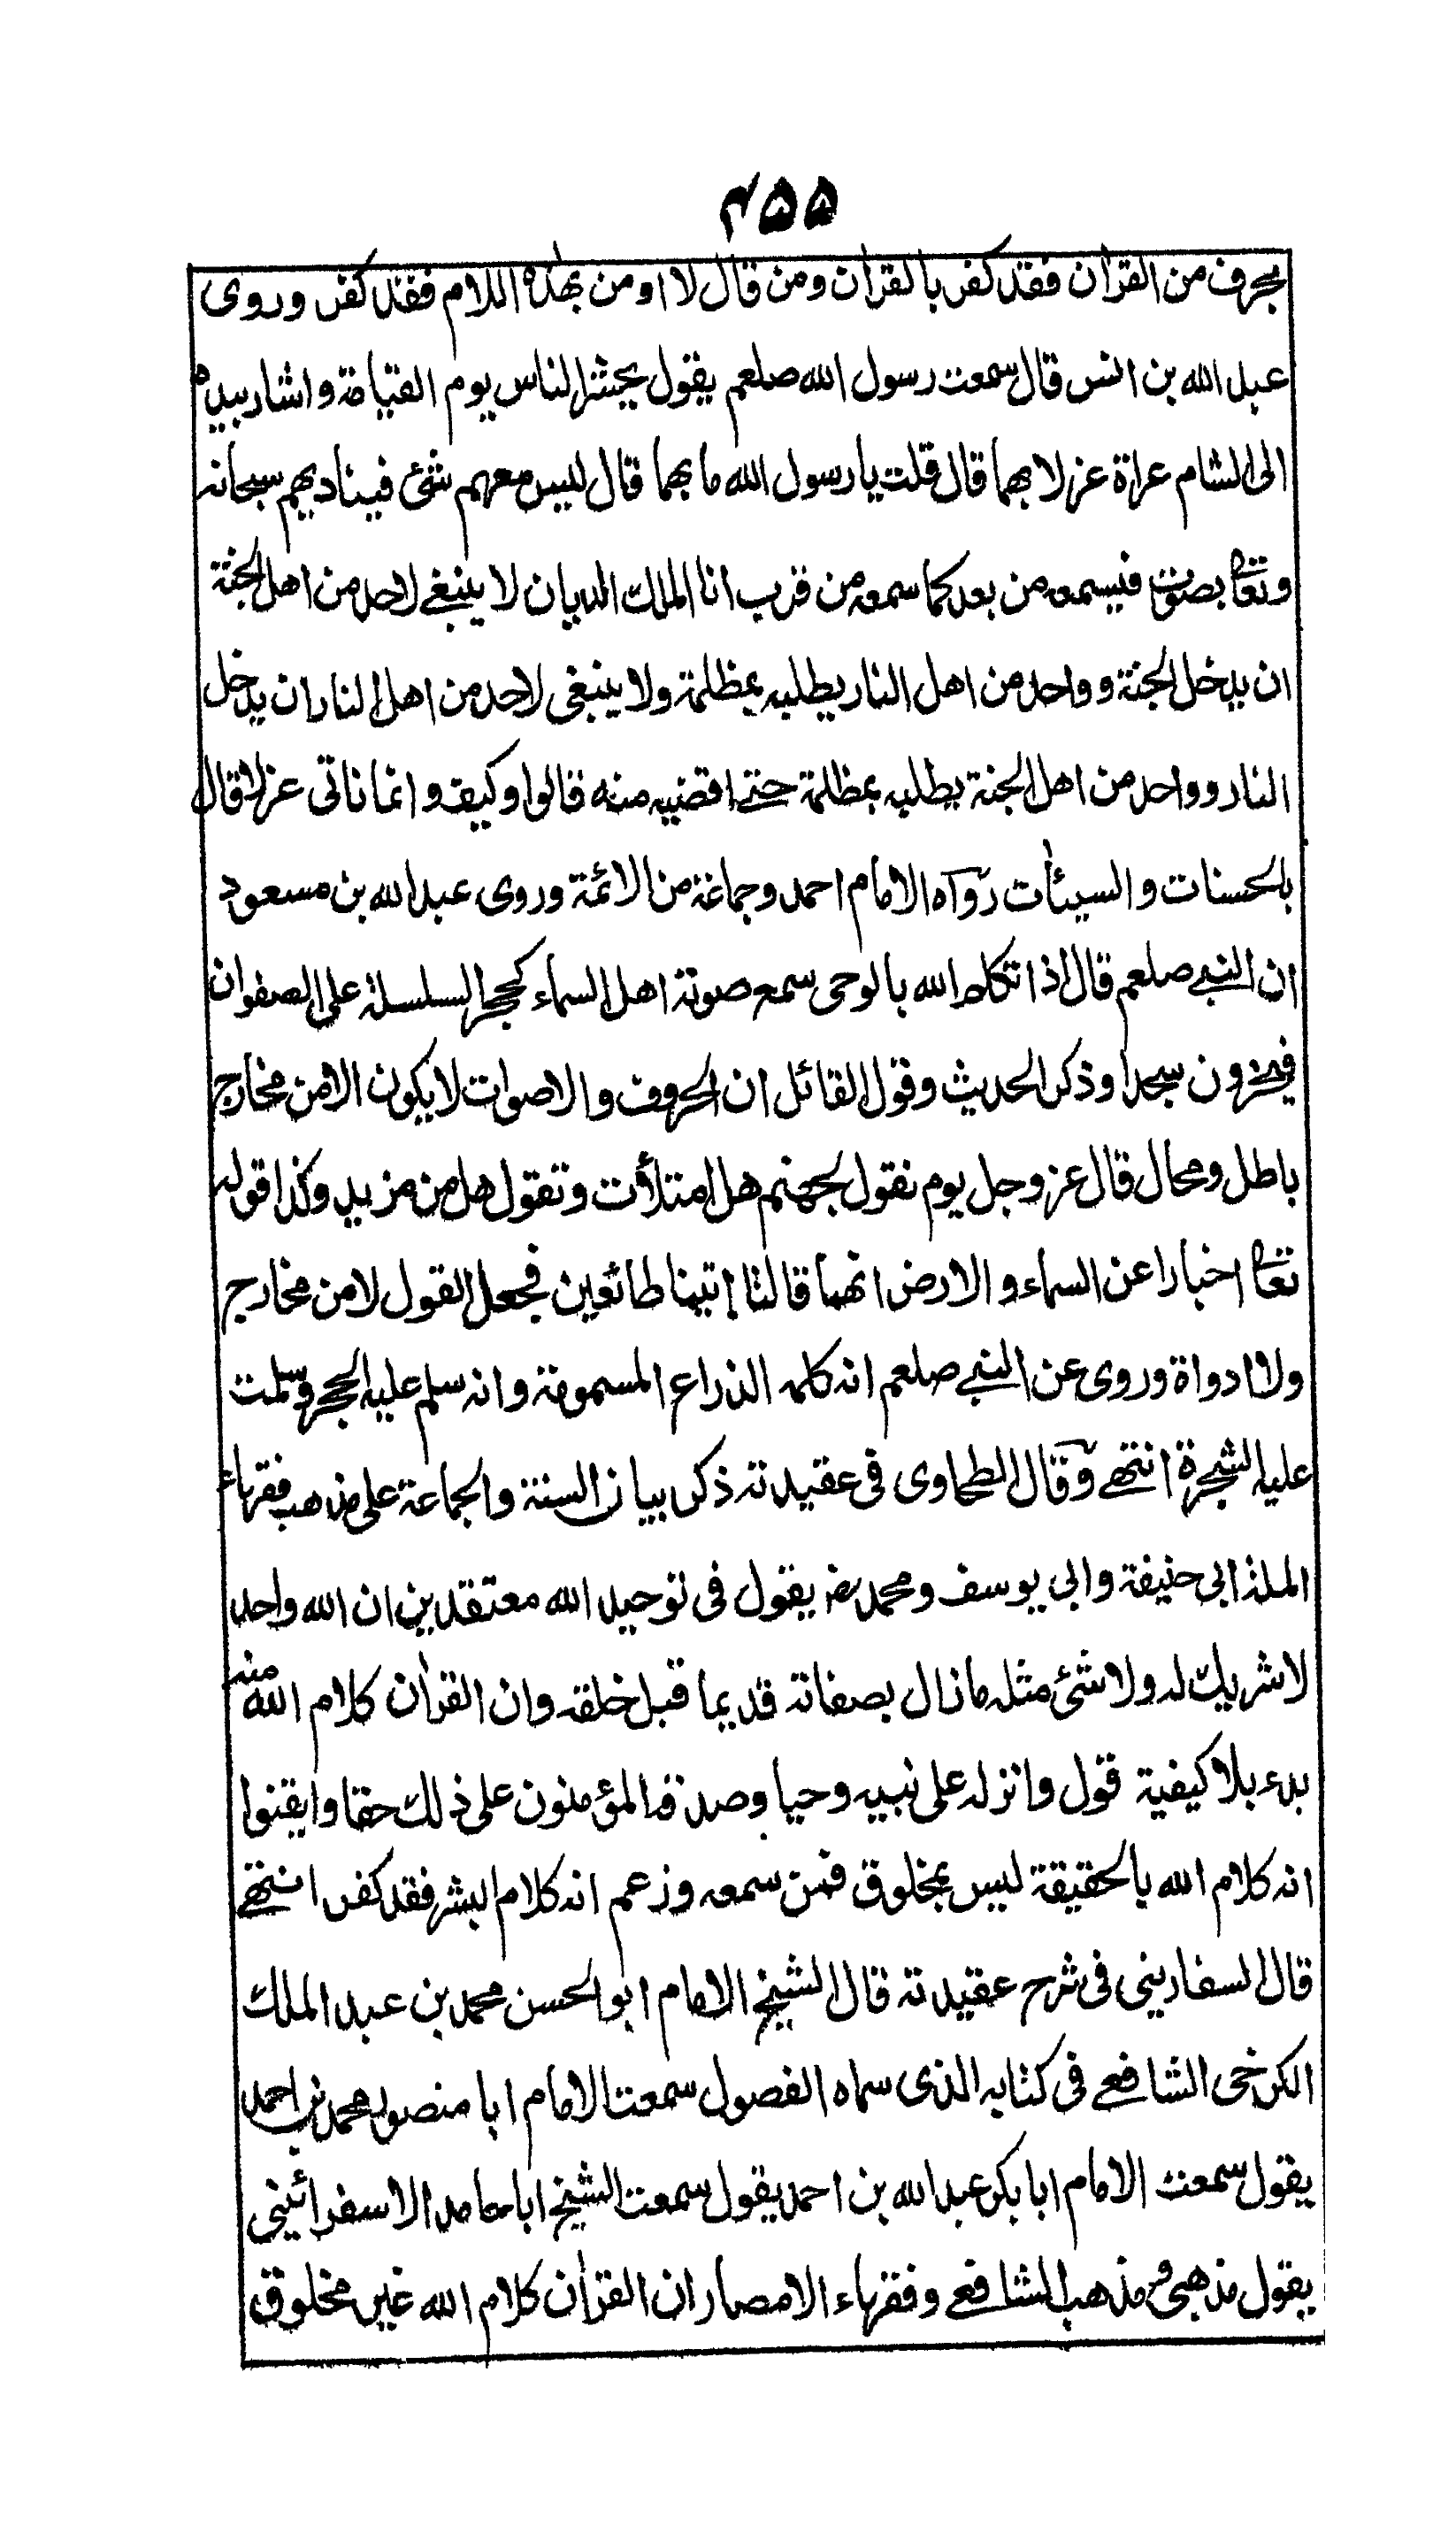 ۴۵۵
بحرف من القراٰن فقد كفر بالقراٰن ومن قال لا اومن بهذه اللام فقد كفر وروى
عبد الله بن انس قال سمعت رسول الله صلعم يقول يحشر الناس يوم القيامة واشار بيده
الى الشام عراة عزلا بهما قال قلت يا رسول الله ما بهما قال ليس معهم شئ فيناديهم سبحانه
وتعالى بصوت فيسمعه من بعد كما سمعه من قرب انا الملك الديان لا ينبغي لاحد من اهل الجنة
ان يدخل الجنة وواحد من اهل النار يطلبه بمظلمة ولا ينبغى لاحد من اهل النار ان يدخل
النار وواحد من اهل الجنة يطلبه بمظلمة حتے اقضيه منه قالوا وكيف وانما ناتى عزلا قال
بالحسنات والسيئات رواه الامام احمد وجماعة من الائمة وروى عبد الله بن مسعود
ان النبے صلعم قال اذا تكلم الله بالوحى سمع صوته اهل السماء كجر السلسلة على الصفوان
فيخرون سجدا وذكر الحديث وقول القائل ان الحروف والاصوات لا يكون الا من مخارج
باطل ومحال قال عز وجل يوم نقول لجهنم هل امتلأت وتقول هل من مزيد وكذا قوله
تعالى اخبارا عن السماء والارض انهما قالتا اتينا طائعين فجعل القول لا من مخارج
ولا ادواة وروى عن النبے صلعم انه كلمه الذراع المسمومة وانه سلم عليه الحجر وسلمت
عليه الشجرة انتهے وقال الطحاوى فى عقيدته ذكر بيان السنة والجماعة على مذهب فقهاء
الملة ابى حنيفة وابى يوسف ومحمد رض يقول فى توحيد الله معتقدين ان الله واحد
لا شريك له ولا شئ مثله ما زال بصفاته قديما قبل خلقه وان القراٰن كلام الله منه
بدء بلا كيفية قول وانزله على نبيه وحيا وصدقه المؤمنون على ذلك حقا وايقنوا
انه كلام الله بالحقيقة ليس بمخلوق فمن سمعه وزعم انه كلام البشر فقد كفر انتهے
قال السفارينى فى شرح عقيدته قال الشيخ الامام ابو الحسن محمد بن عبد الملك
الكرخى الشافعے فى كتابه الذى سماه الفصول سمعت الامام ابا منصور محمد بن احمد
يقول سمعت الامام ابا بكر عبد الله بن احمد يقول سمعت الشيخ ابا حامد الاسفرائينى
يقول مذهبى ومذهب الشافعے وفقهاء الامصار ان القراٰن كلام الله غير مخلوق